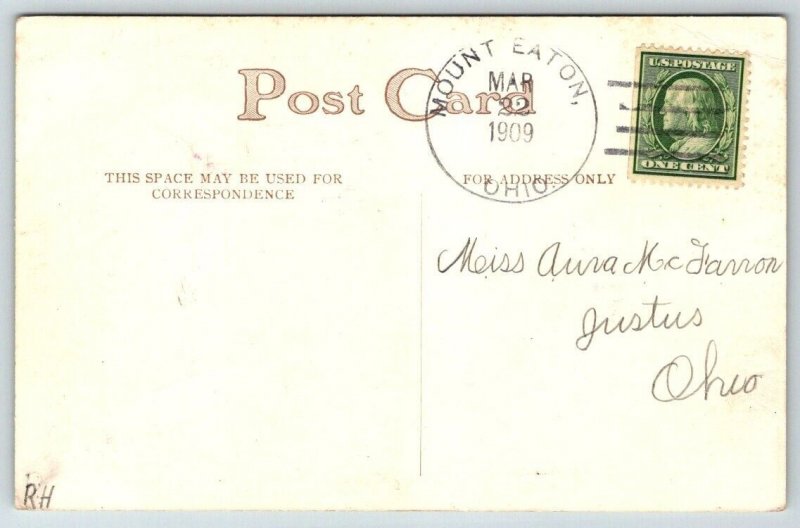 Post Card
MOUNT EATON,
MAR
22
1909
OHIO.
U.S. POSTAGE
ONE CENT
THIS SPACE MAY BE USED FOR
CORRESPONDENCE
FOR ADDRESS ONLY
Miss Aura McFarron
Justus
Ohio
RH